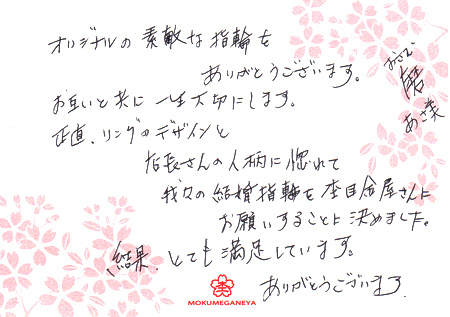 オリジナルの素敵な指輪を
ありがとうございます。
お互いと共に一生大切にします。
正直、リングのデザインと
店長さんの人柄に惚れて
我々の結婚指輪を杢目金屋さんに
お願いすることに決めました。
結果、とても満足しています。
ありがとうございます
あさ美
MOKUMEGANEYA